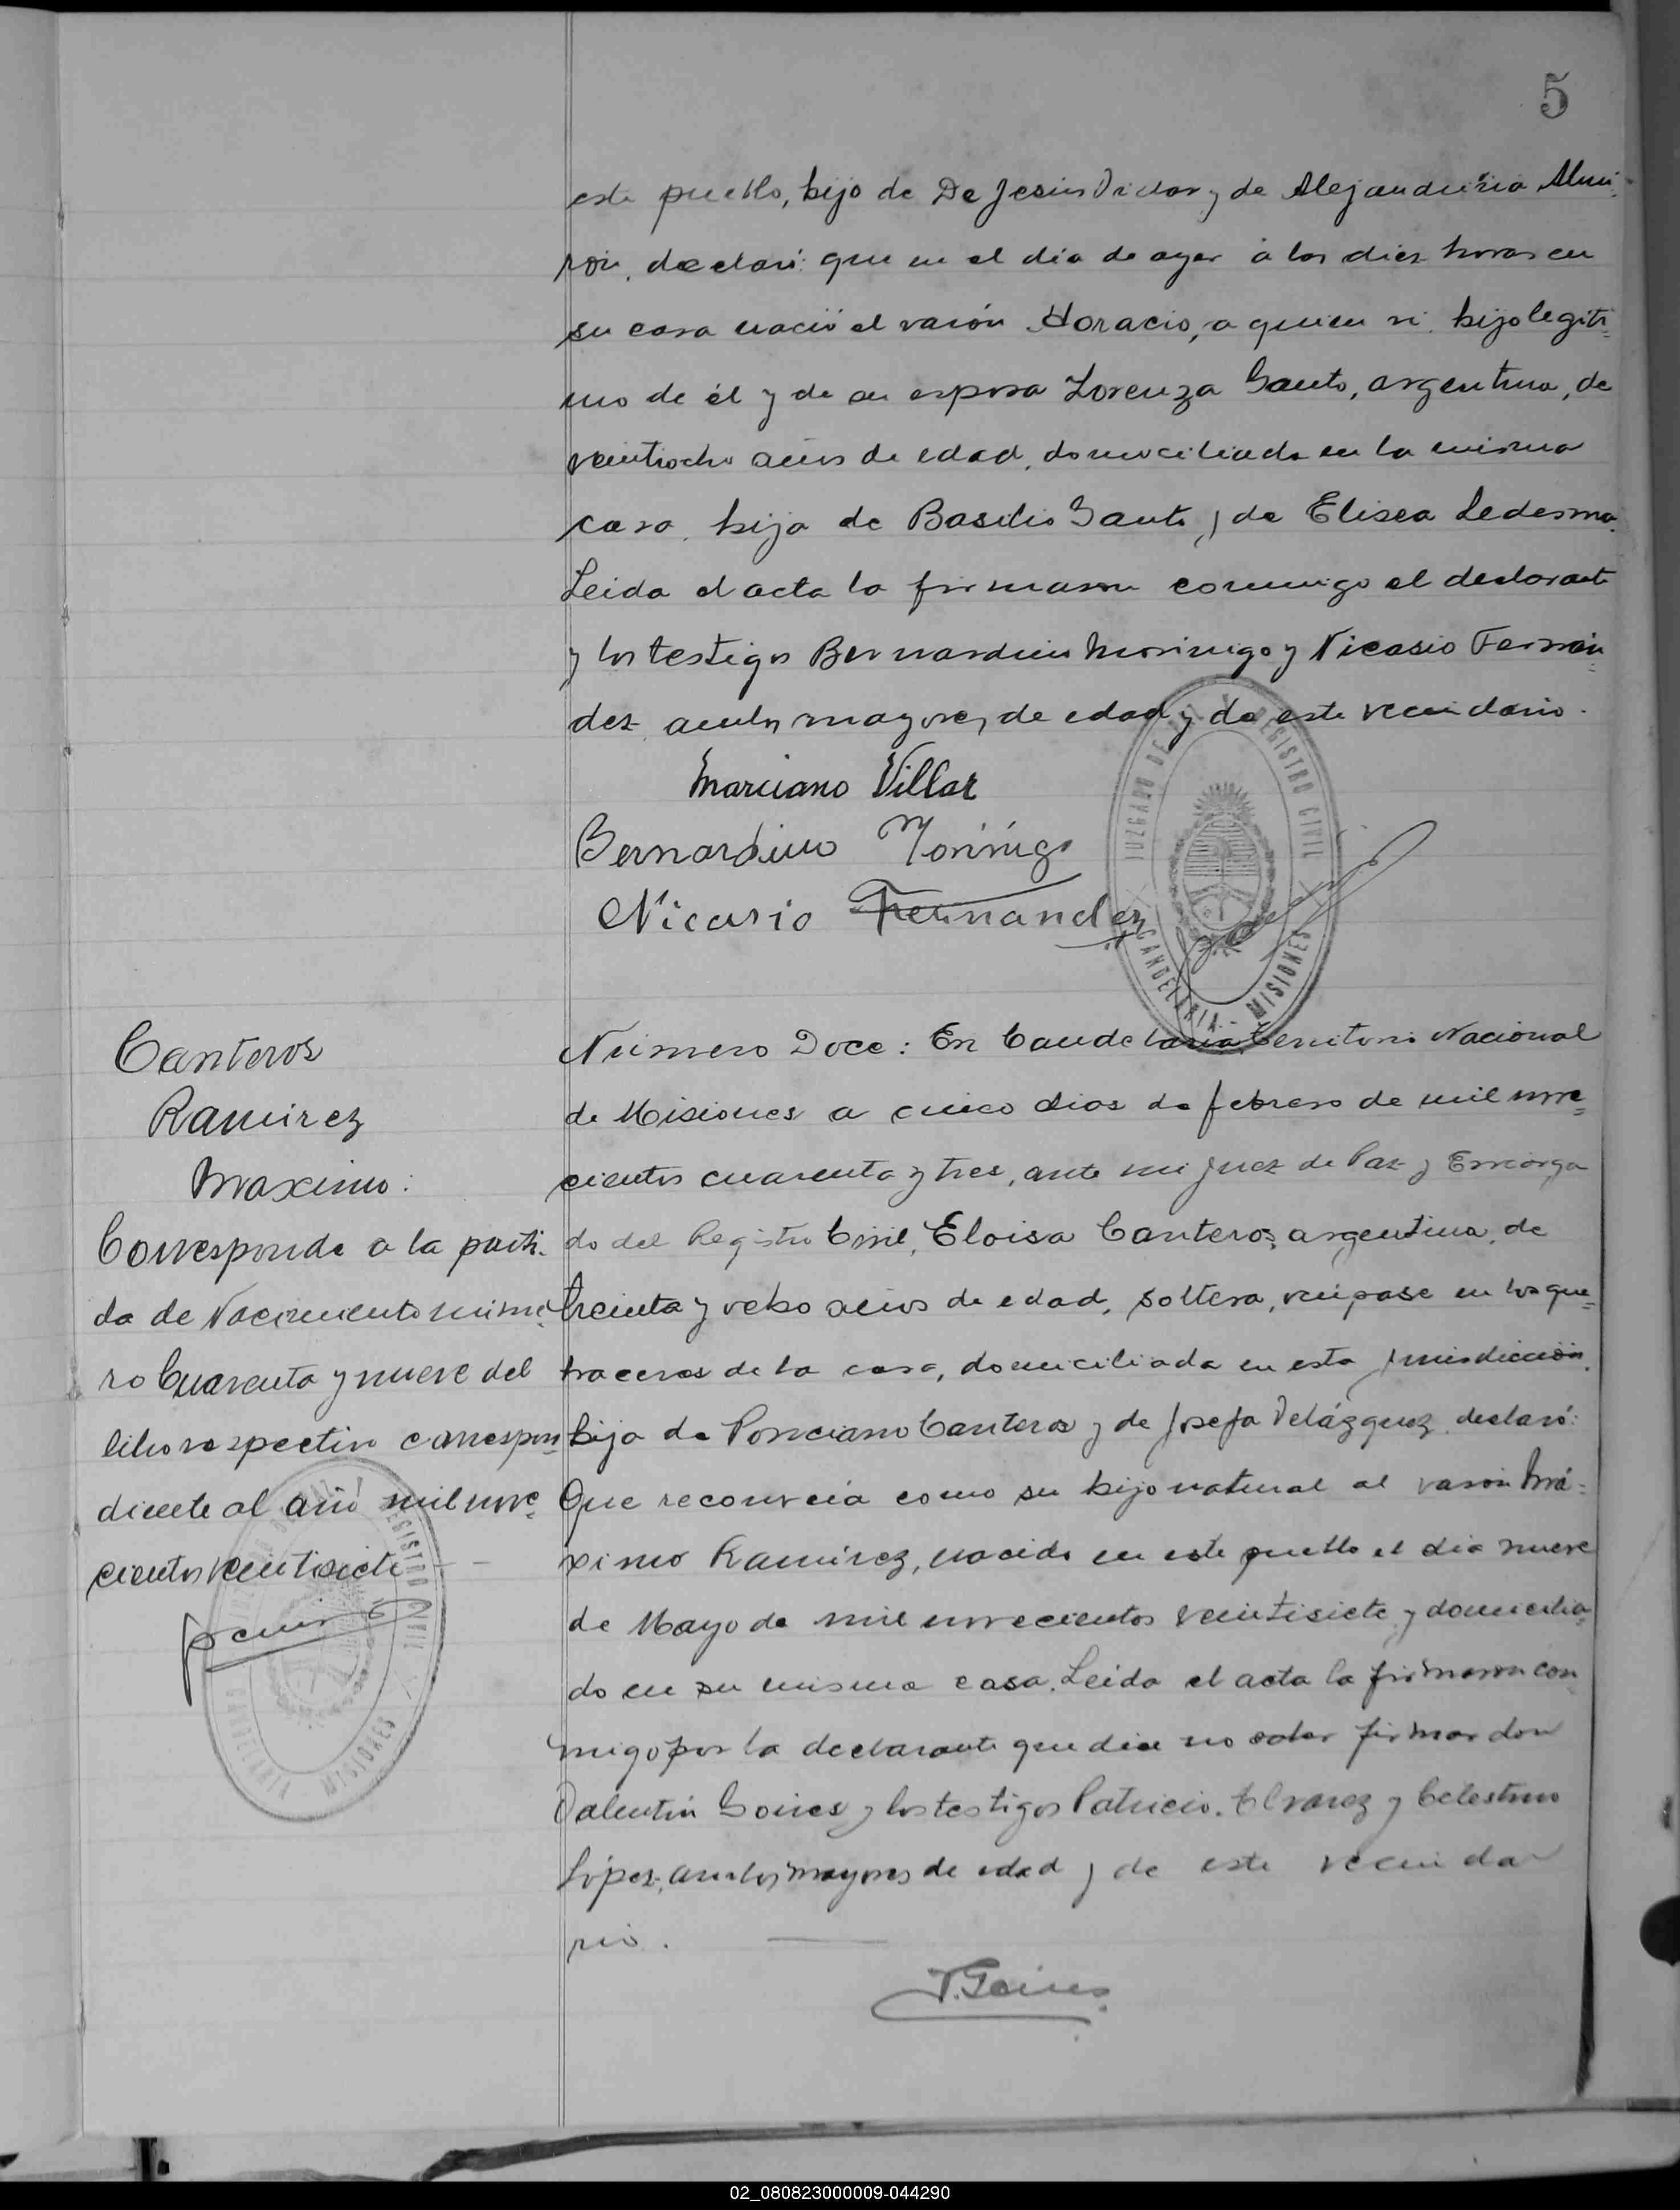 5
este pueblo, hijo de De Jesús Vidar y de Alejandrina Almi-
rón, declaró: que en el día de ayer á las diez horas en
su casa nació el varón Horacio, a quien vi, hijo legíti=
mo de él y de su esposa Lorenza Gauto, argentina, de
veintiocho años de edad, domiciliada en la misma
casa, hija de Basilio Gauto y de Elisea Ledesma.
Leida el acta la firmaron conmigo el declarante
y los testigos Bernardino Morinigo y Nicasio Fernán=
dez, ambos mayores de edad y de este vecindario.
Marciano Villar
Bernardino Morinigo
Nicasio Fernandez
JUZGADO DE PAZ Y REGISTRO CIVIL
CANDELARIA - MISIONES
Canteros
Ramirez
Maximo:
Corresponde a la parti-
da de Nacimiento núme-
ro Cuarenta y nueve del
libro respectivo correspon=
diente al año mil nove=
cientos veintisiete
JUZGADO DE PAZ Y REGISTRO CIVIL
CANDELARIA MISIONES
Número Doce: En Candelaria Territorio Nacional
de Misiones a cinco dias de febrero de mil nove=
cientos cuarenta y tres, ante mi Juez de Paz y Encarga
do del Registro Civil, Eloisa Canteros, argentina, de
treinta y ocho años de edad, soltera, ocúpase en los que=
haceres de la casa, domiciliada en esta jurisdicción,
hija de Ponciano Canteros y de Josefa Velázquez, declaró:
Que reconocía como su hijo natural al varón Má=
ximo Ramírez, nacido en este pueblo el día nueve
de Mayo de mil novecientos veintisiete y domicilia-
do en su misma casa. Leida el acta la firmaron con
migo por la declarante que dice no saber firmar don
Valentín Goires y los testigos Patricio Alvarez y Celestino
López, ambos mayores de edad y de este vecinda
rio.
V. Goires
02_080823000009-044290